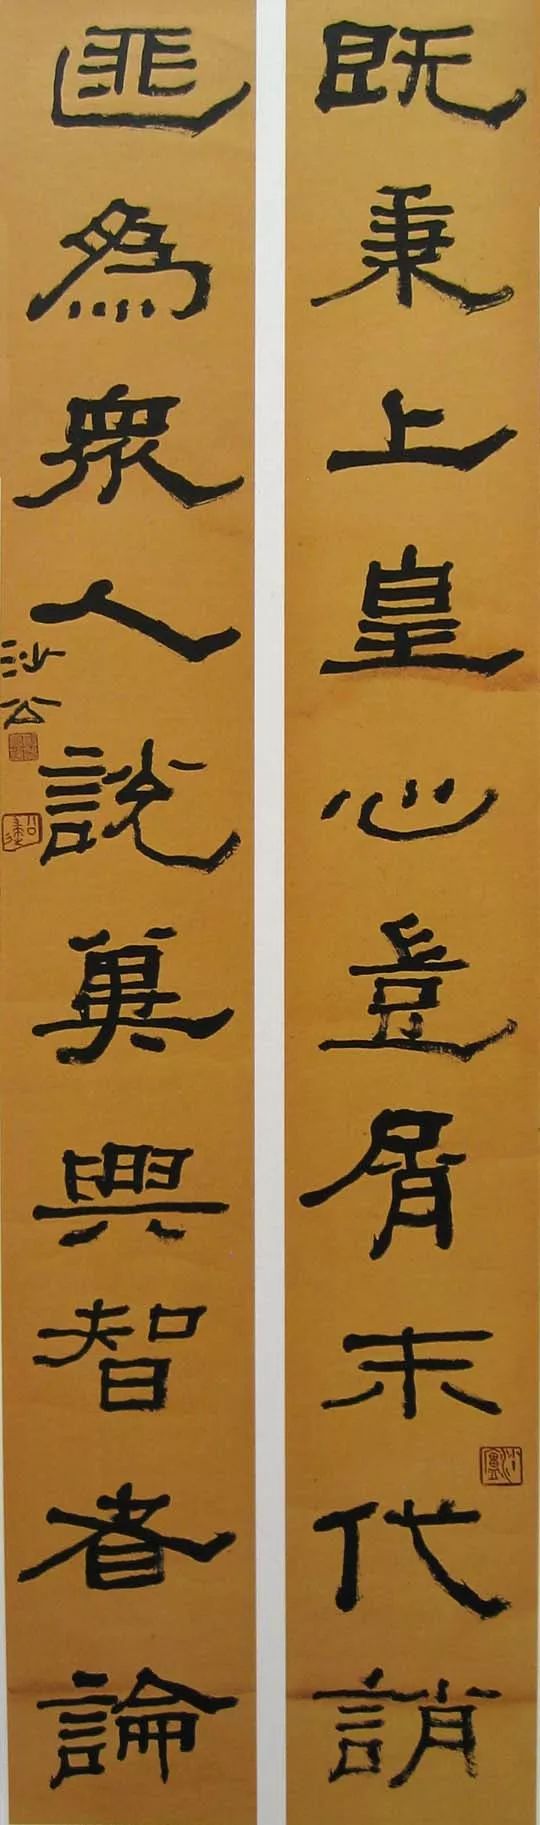 既秉上皇心豈屑末代誚
匪為衆人說冀與智者論
沙公